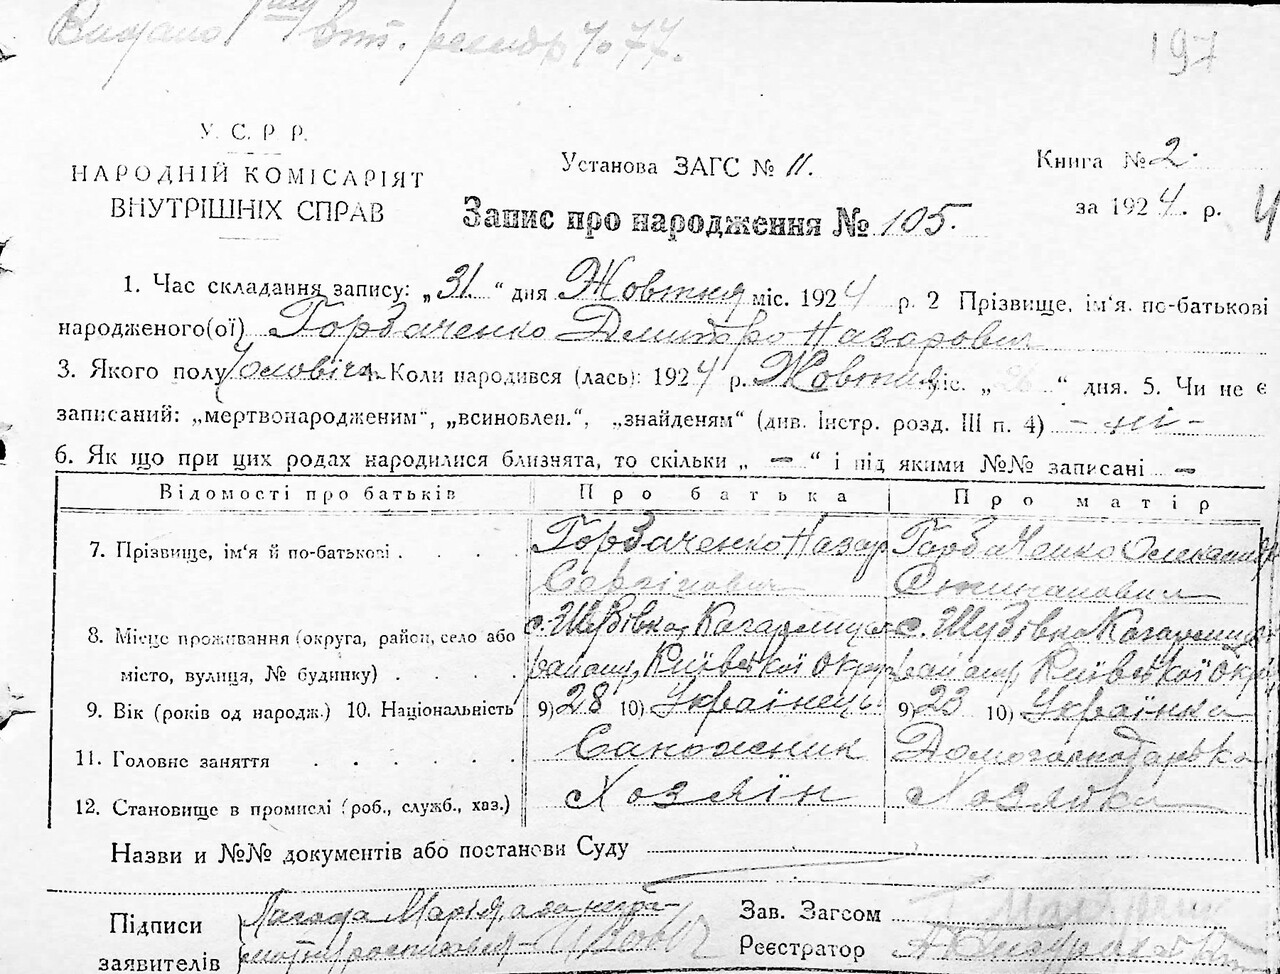 Видано вт.
197
У. С. Р. Р.
НАРОДНІЙ КОМІСАРІЯТ
ВНУТРІШНІХ СПРАВ
Установа ЗАГС № 11.
Запис про народження № 105.
Книга № 2.
за 1924 р.
4
1. Час складання запису: „31.“ дня Жовтня міс. 1924 р. 2 Прізвище, ім'я, по-батькові
народженого(ої) Горбаченко Дмитро Назарович
3. Якого полу Чоловіч. 4. Коли народився (лась): 1924 р. Жовтня міс. „26“ дня. 5. Чи не є
записаний: „мертвонародженим“, „всиновлен.“, „знайденям“ (див. Інстр. розд. III п. 4) - ні -
6. Як що при цих родах народилися близнята, то скільки „ — “ і під якими №№ записані —
Відомості про батьків Про батька Про матір
7. Прізвище, ім'я й по-батькові . . . . Горбаченко Назар Горбаченко Олександр
Сергійович Степановна
8. Місце проживання (округа, район, село або с. Шубівка Кагарлицьк с. Шубівка Кагарлицьк
місто, вулиця, № будинку) . . . . району Київської Округ району Київської Окр
9. Вік (років од народж.) 10. Національність 9) 28 10) Українець 9) 23 10) Українка
11. Головне заняття . . . . . Сапожник Домогосподарька
12. Становище в промислі (роб., служб., хаз.) Хозяїн Хозяйка
Назви и №№ документів або постанови Суду
Підписи Лагода Марія, а за негра-
заявителів мотну росписался
Зав. Загсом
Реєстратор